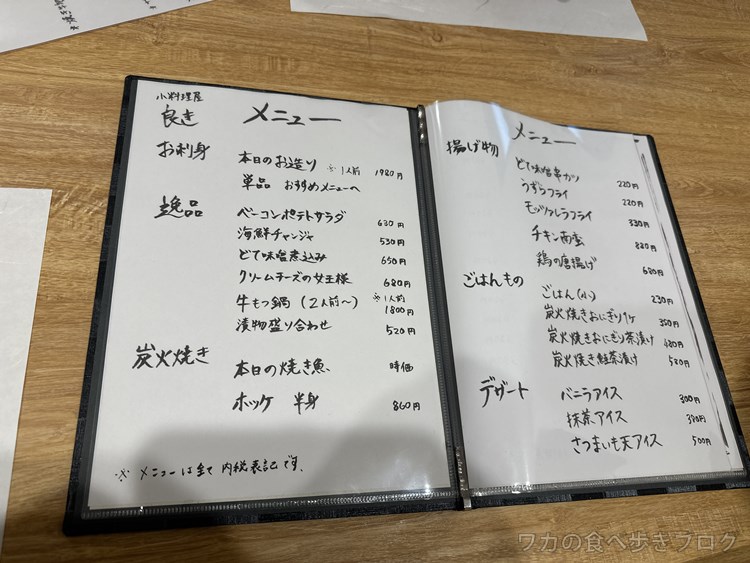 小料理屋
良き
メニュー
お刺身
本日のお造り ※1人前 1980円
単品 おすすめメニューへ
逸品
ベーコンポテトサラダ 630円
海鮮チャンジャ 530円
どて味噌煮込み 650円
クリームチーズの女王様 680円
牛もつ鍋(2人前〜) ※1人前 1800円
漬物盛り合わせ 520円
炭火焼き
本日の焼き魚 時価
ホッケ 半身 860円
※メニューは全て内税表記です。
メニュー
揚げ物
どて味噌串カツ 220円
うずらフライ 220円
モッツァレラフライ 330円
チキン南蛮 880円
鶏の唐揚げ 680円
ごはんもの
ごはん(小) 230円
炭火焼きおにぎり1ヶ 350円
炭火焼きおにぎり茶漬け 480円
炭火焼き鮭茶漬け 580円
デザート
バニラアイス 300円
抹茶アイス 390円
さつまいも天アイス 500円
ワカの食べ歩きブログ